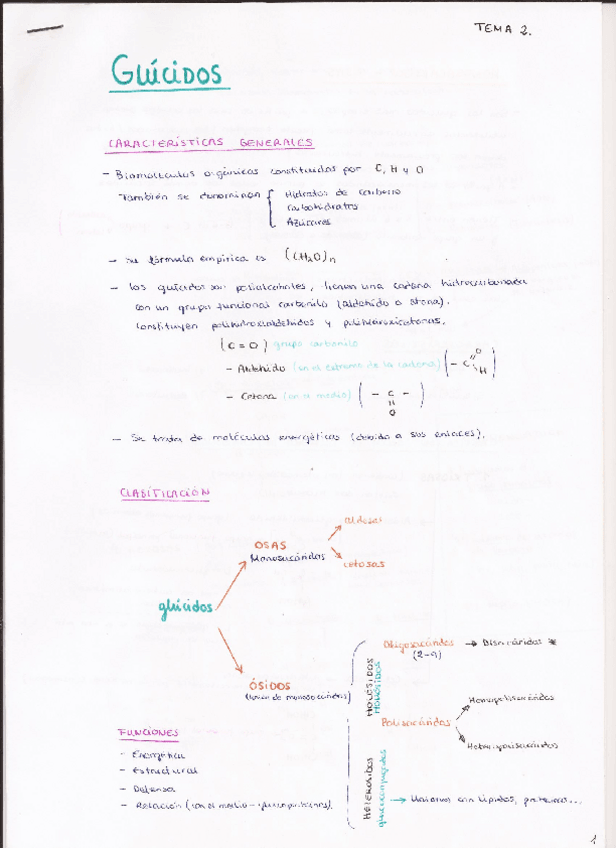 TEMA 2.
GLÚCIDOS
CARACTERÍSTICAS GENERALES
- Biomoléculas orgánicas constituidas por C, H y O
También se denominan { Hidratos de carbono
Carbohidratos
Azúcares
- Su fórmula empírica es (CH2O)n
- Los glúcidos son polialcoholes, tienen una cadena hidrocarbonada
con un grupo funcional carbonilo (aldehído o cetona).
Constituyen polihidroxialdehídos y polihidroxicetonas.
(C=O) grupo carbonilo
- Aldehído (en el extremo de la cadena) (-C O H)
- Cetona (en el medio) (- C - O)
- Se trata de moléculas energéticas (debido a sus enlaces).
CLASIFICACIÓN
aldosas
OSAS
Monosacáridos
cetosas
glúcidos
Oligosacáridos → Disacáridos *
(2-9)
HOLÓSIDOS
ÓSIDOS
(unión de monosacáridos)
Homopolisacáridos
Polisacáridos
Heteropolisacáridos
FUNCIONES
- Energética
- Estructural
- Defensa
- Relación (con el medio - glucoproteínas).
HETERÓSIDOS
glucoconjugados
→ Uniones con lípidos, proteínas...
1